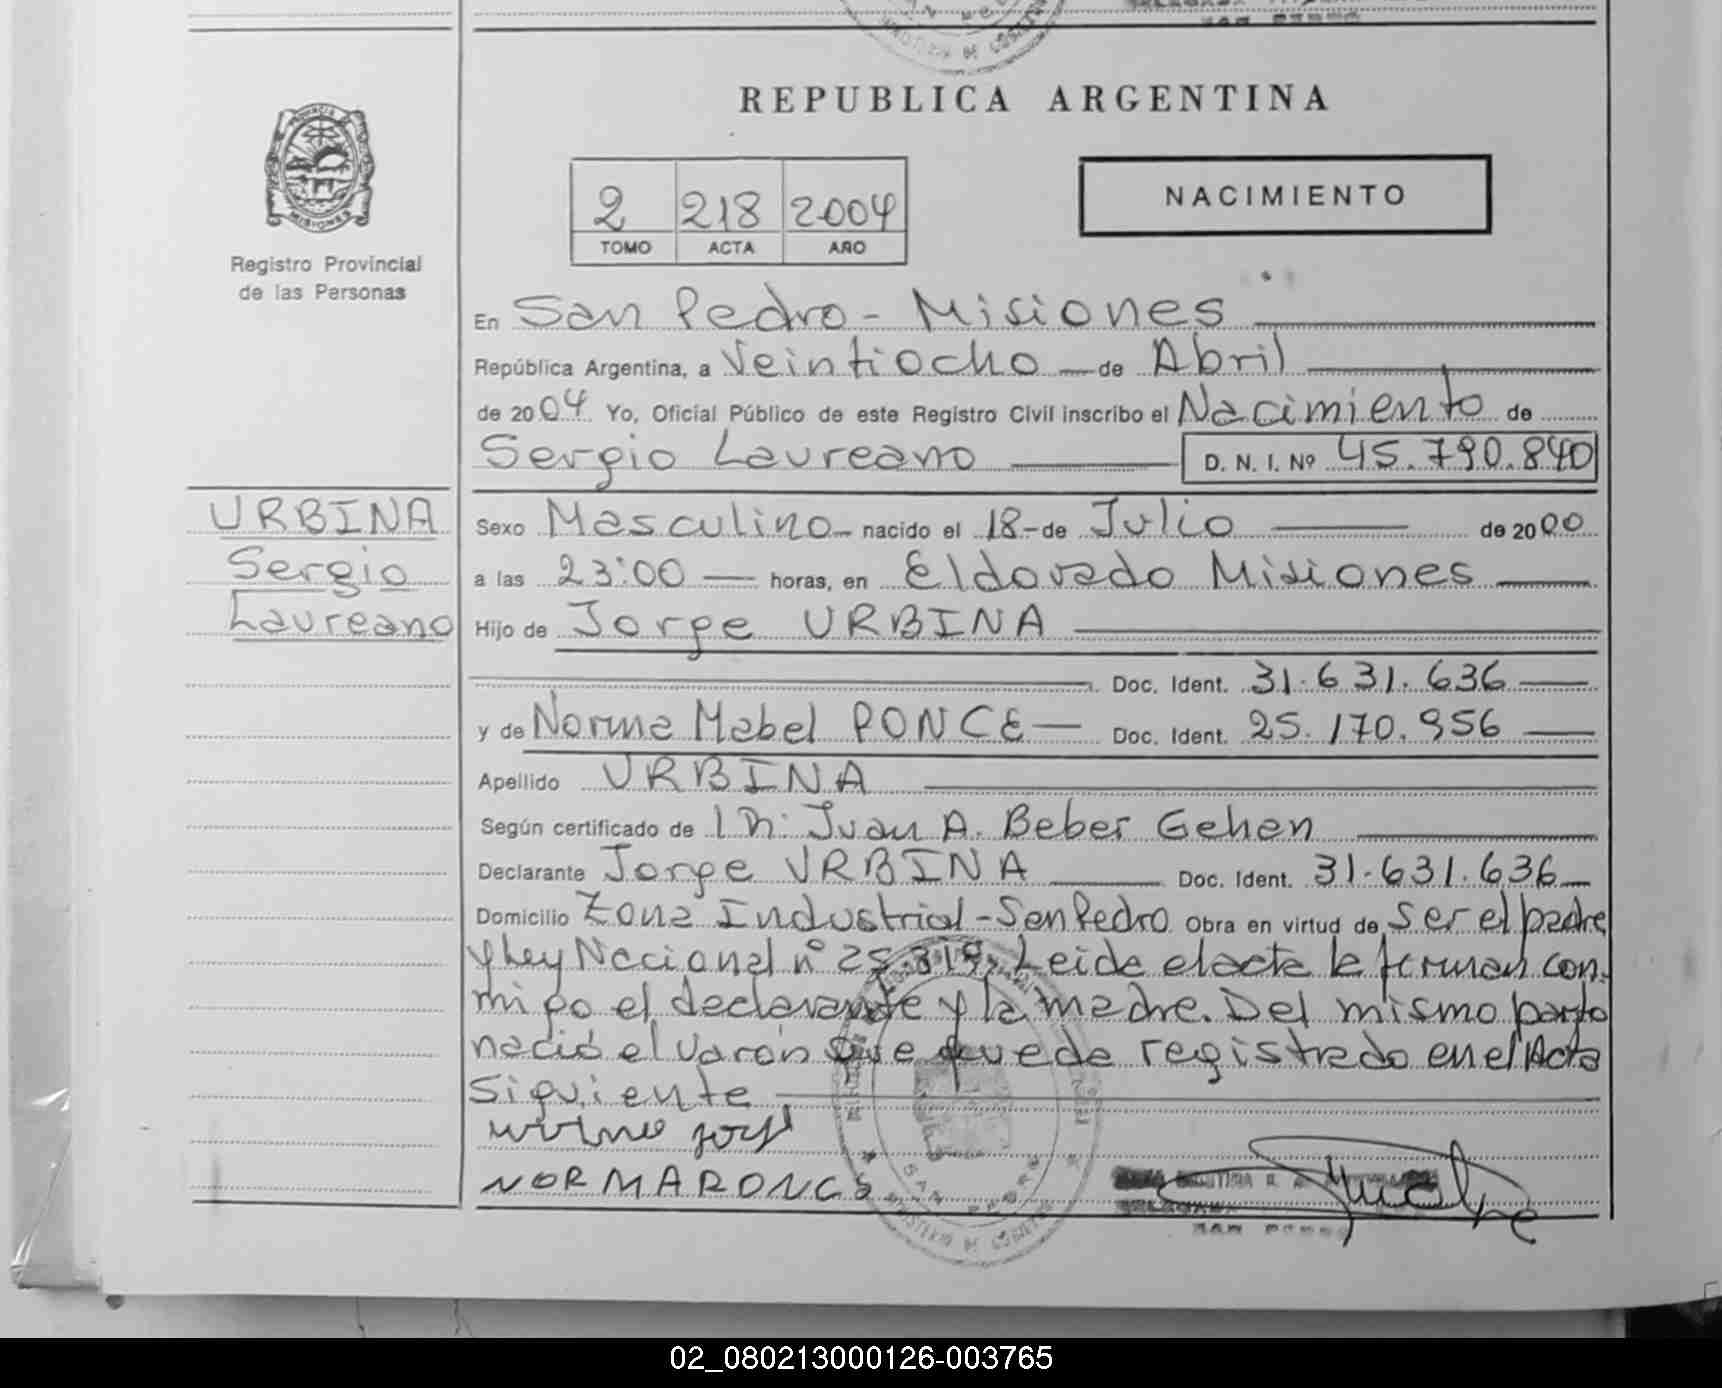 REPUBLICA ARGENTINA
2 218 2004
TOMO ACTA AÑO
NACIMIENTO
MISIONES
Registro Provincial
de las Personas
En San Pedro - Misiones
República Argentina, a Veintiocho de Abril
de 2004 Yo, Oficial Público de este Registro Civil inscribo el Nacimiento de
Sergio Laureano D. N. I. Nº 45.790.840
URBINA
Sergio
Laureano
Sexo Masculino nacido el 18 - de Julio de 2000
a las 23:00 horas, en Eldorado Misiones
Hijo de Jorge URBINA
Doc. Ident. 31.631.636
y de Norma Mabel PONCE Doc. Ident. 25.170.956
Apellido URBINA
Según certificado de Juan A. Beber Gehen
Declarante Jorge URBINA Doc. Ident. 31.631.636
Domicilio Zona Industrial - San Pedro Obra en virtud de ser el padre
y Ley Nacional nº 25.819, Leida el acta la firman con-
migo el declarante y la madre. Del mismo parto
nació el varón que quede registrado en el Acta
Siguiente
urbina jorge
NORMA PONCE
SAN PEDRO
SAN PEDRO
02_080213000126-003765